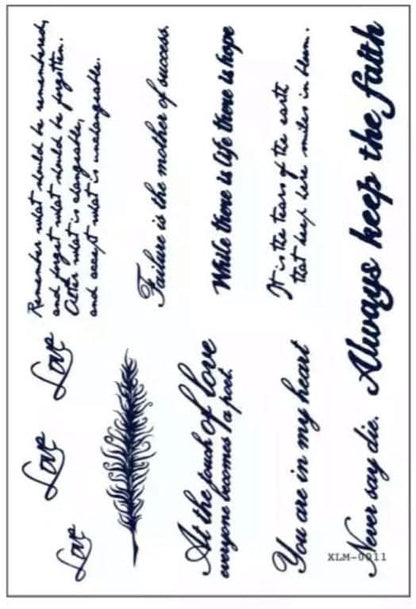 Remember what should be remembered,
and forget what should be forgotten.
Alter what is changeable,
and accept what is unchangeable.
Failure is the mother of success.
While there is life there is hope
It is the tears of the earth
that keep here smiles in bloom.
Always keep the faith
Love
Love
Love
At the touch of love
everyone becomes a poet.
You are in my heart
Never say die.
XLM-0011